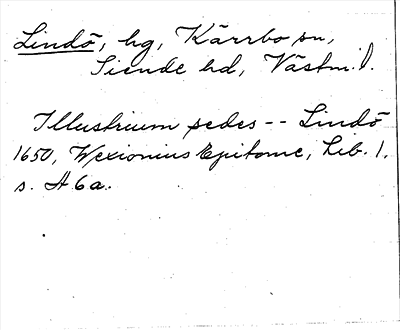 Lindö, hg, Kärrbo sn,
Siende hd, Västm. l.
Illustrium sedes -- Lindö
1650, Wexionius Epitome, Lib. 1,
s. A 6 a.